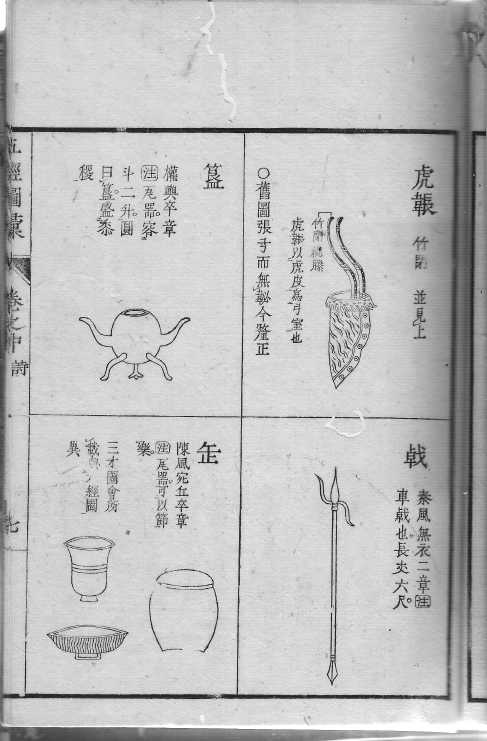 虎韔 竹閉 並見上
竹閉緄縢
虎韔以虎皮爲弓室也
○舊圖張弓而無韔今釐正
戟
秦風無衣二章注
車戟也長丈六尺
簋
權輿卒章
注瓦器容
斗二升圓
曰簋盛黍
稷
缶
陳風宛丘卒章
注瓦器可以節
樂
三才圖會所
載與 經圖
異
五經圖彙 卷之中 詩
七